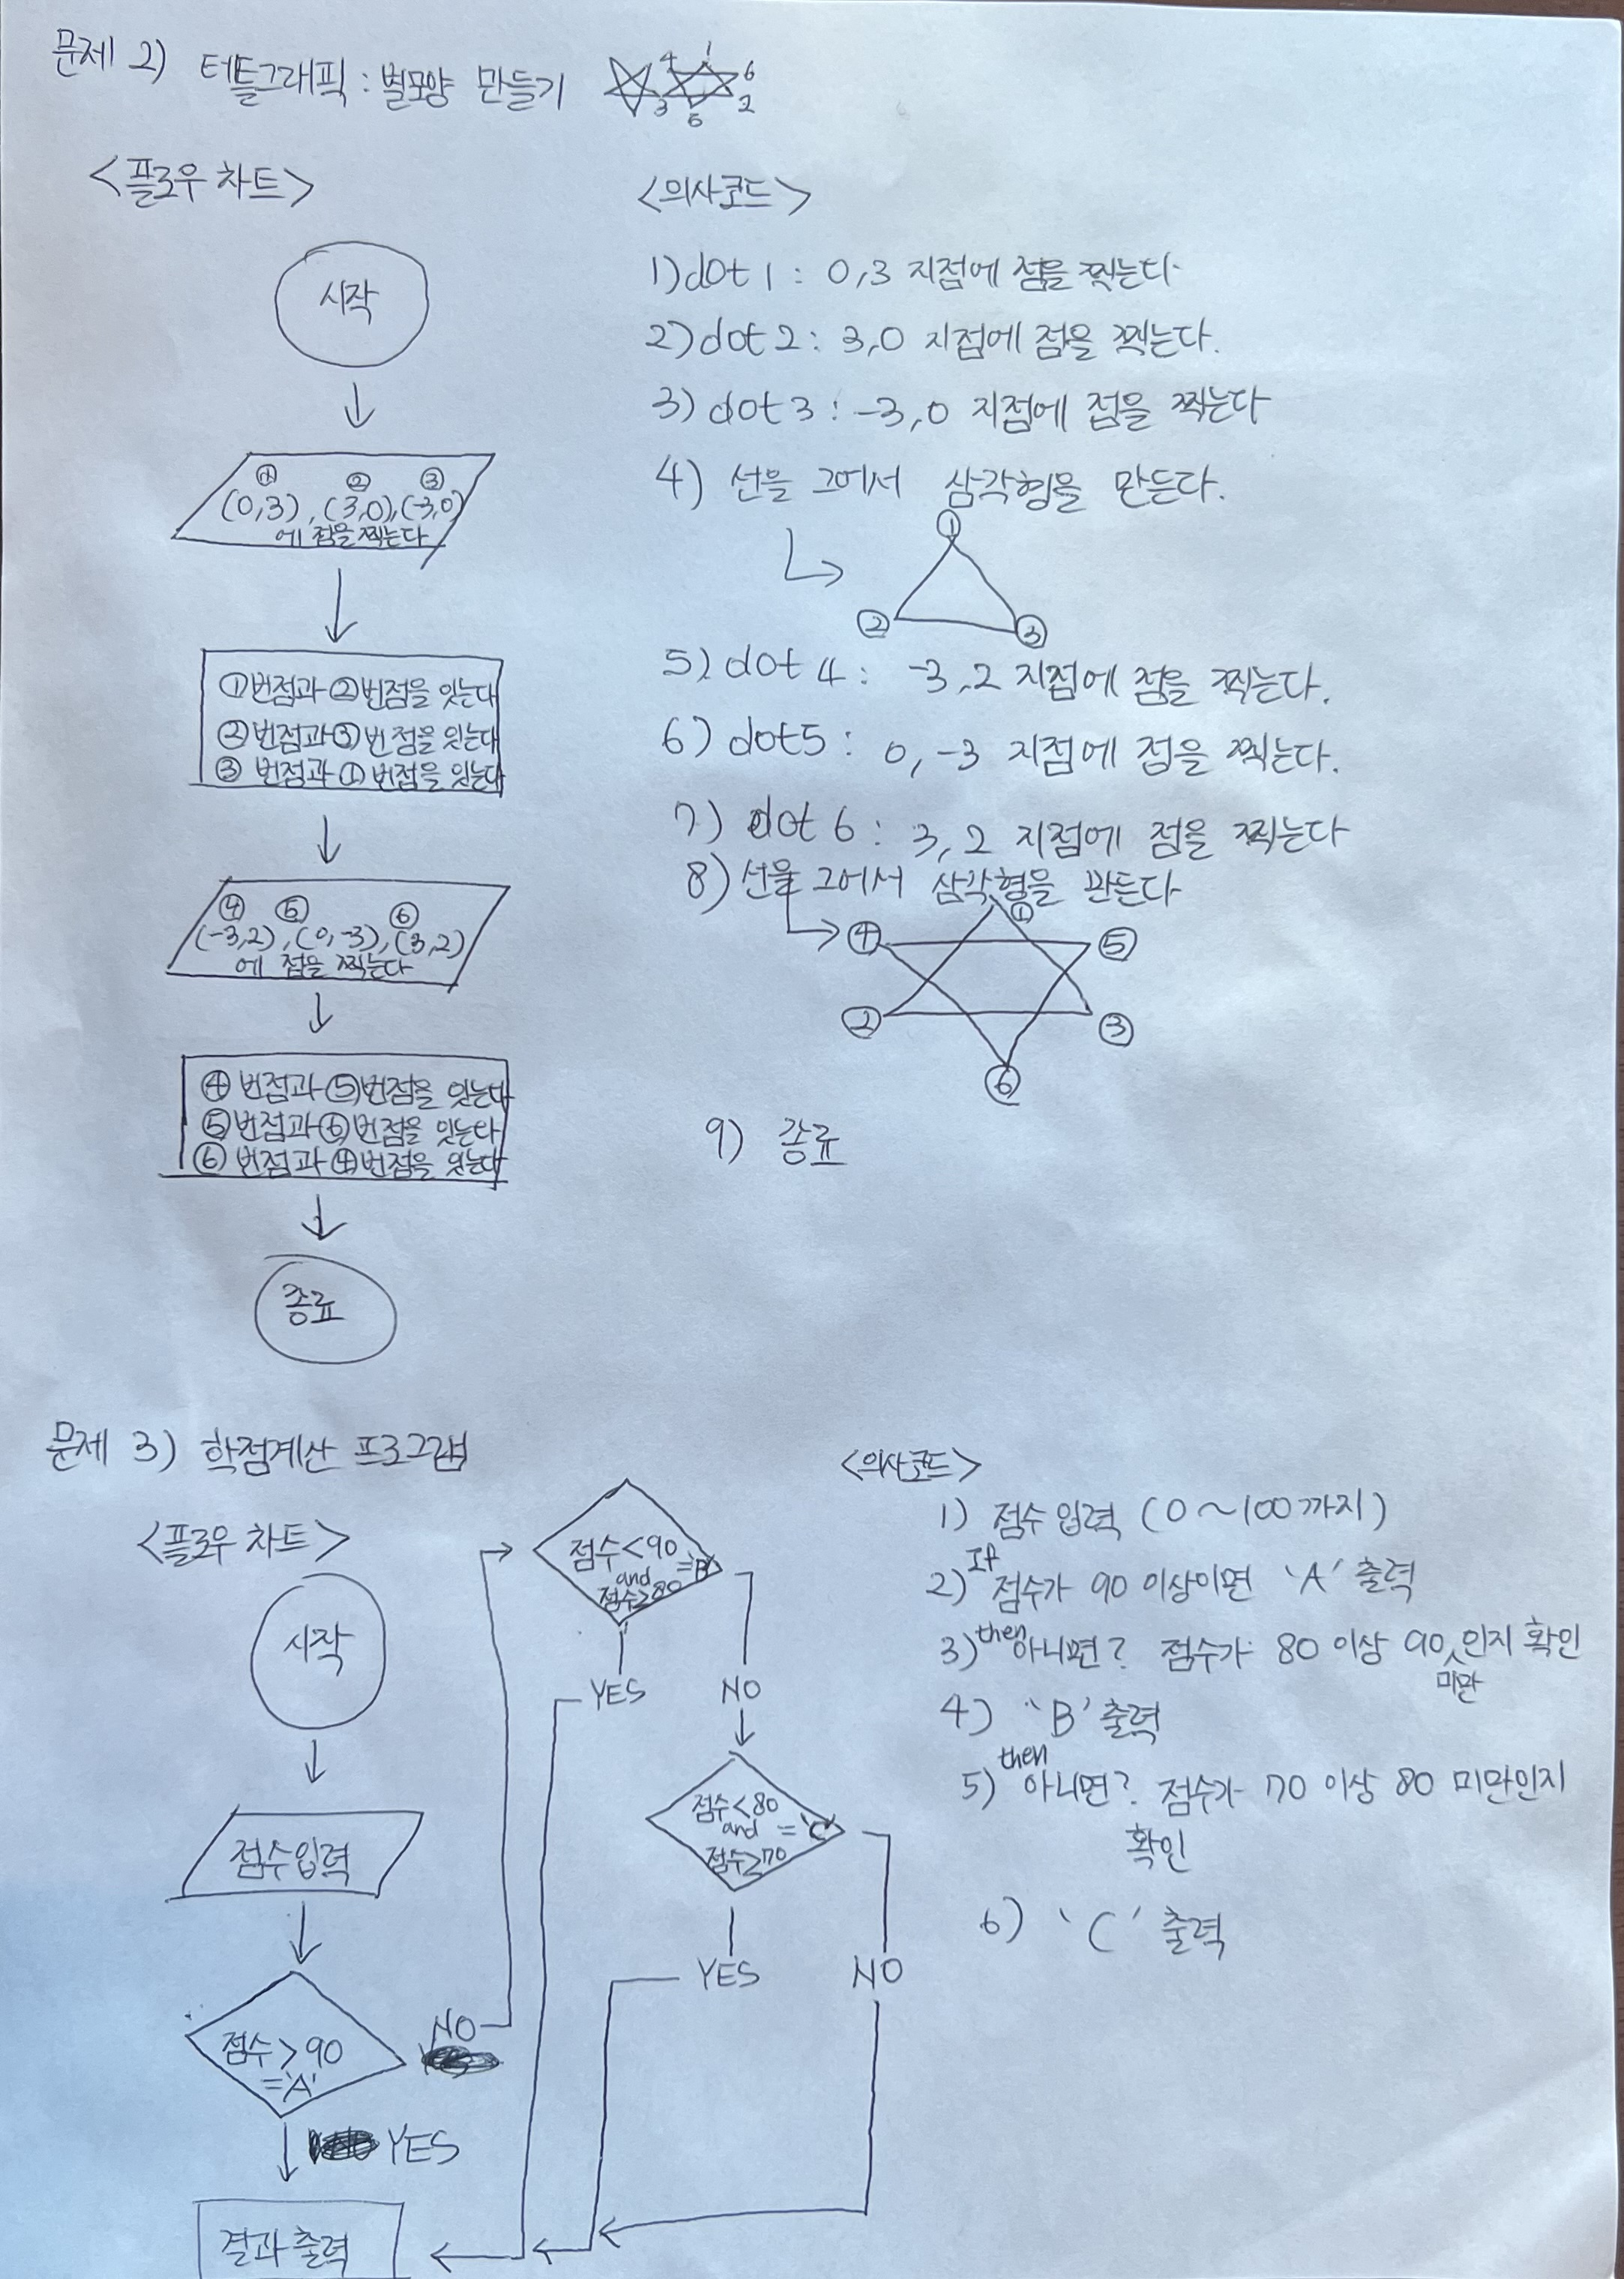 문제 2) 터틀그래픽 : 별모양 만들기
1
4
6
3
2
5
<플로우 차트>
시작
① ② ③
(0,3), (3,0), (-3,0)
에 점을 찍는다
①번점과 ②번점을 잇는다
②번점과 ③번점을 잇는다
③ 번점과 ①번점을 잇는다
④ ⑤ ⑥
(-3,2), (0,-3), (3,2)
에 점을 찍는다
④ 번점과 ⑤번점을 잇는다
⑤번점과 ⑥번점을 잇는다
⑥ 번점과 ④번점을 잇는다
종료
<의사코드>
1) dot 1 : 0,3 지점에 점을 찍는다.
2) dot 2 : 3,0 지점에 점을 찍는다.
3) dot 3 : -3,0 지점에 점을 찍는다
4) 선을 그어서 삼각형을 만든다.
①
② ③
5) dot 4 : -3,2 지점에 점을 찍는다.
6) dot5 : 0,-3 지점에 점을 찍는다.
7) dot 6 : 3,2 지점에 점을 찍는다
8) 선을 그어서 삼각형을 만든다
①
④ ⑤
② ③
⑥
9) 종료
문제 3) 학점계산 프로그램
<플로우 차트>
시작
점수입력
점수 > 90
='A'
NO
YES
결과 출력
점수<90
and ='B'
점수≥80
YES NO
점수<80
and ='C'
점수≥70
YES NO
<의사코드>
1) 점수 입력 (0~100까지)
2) If 점수가 90 이상이면 'A' 출력
3) then 아니면? 점수가 80 이상 90 미만 인지 확인
4) 'B' 출력
5) then 아니면? 점수가 70 이상 80 미만인지
확인
6) 'C' 출력